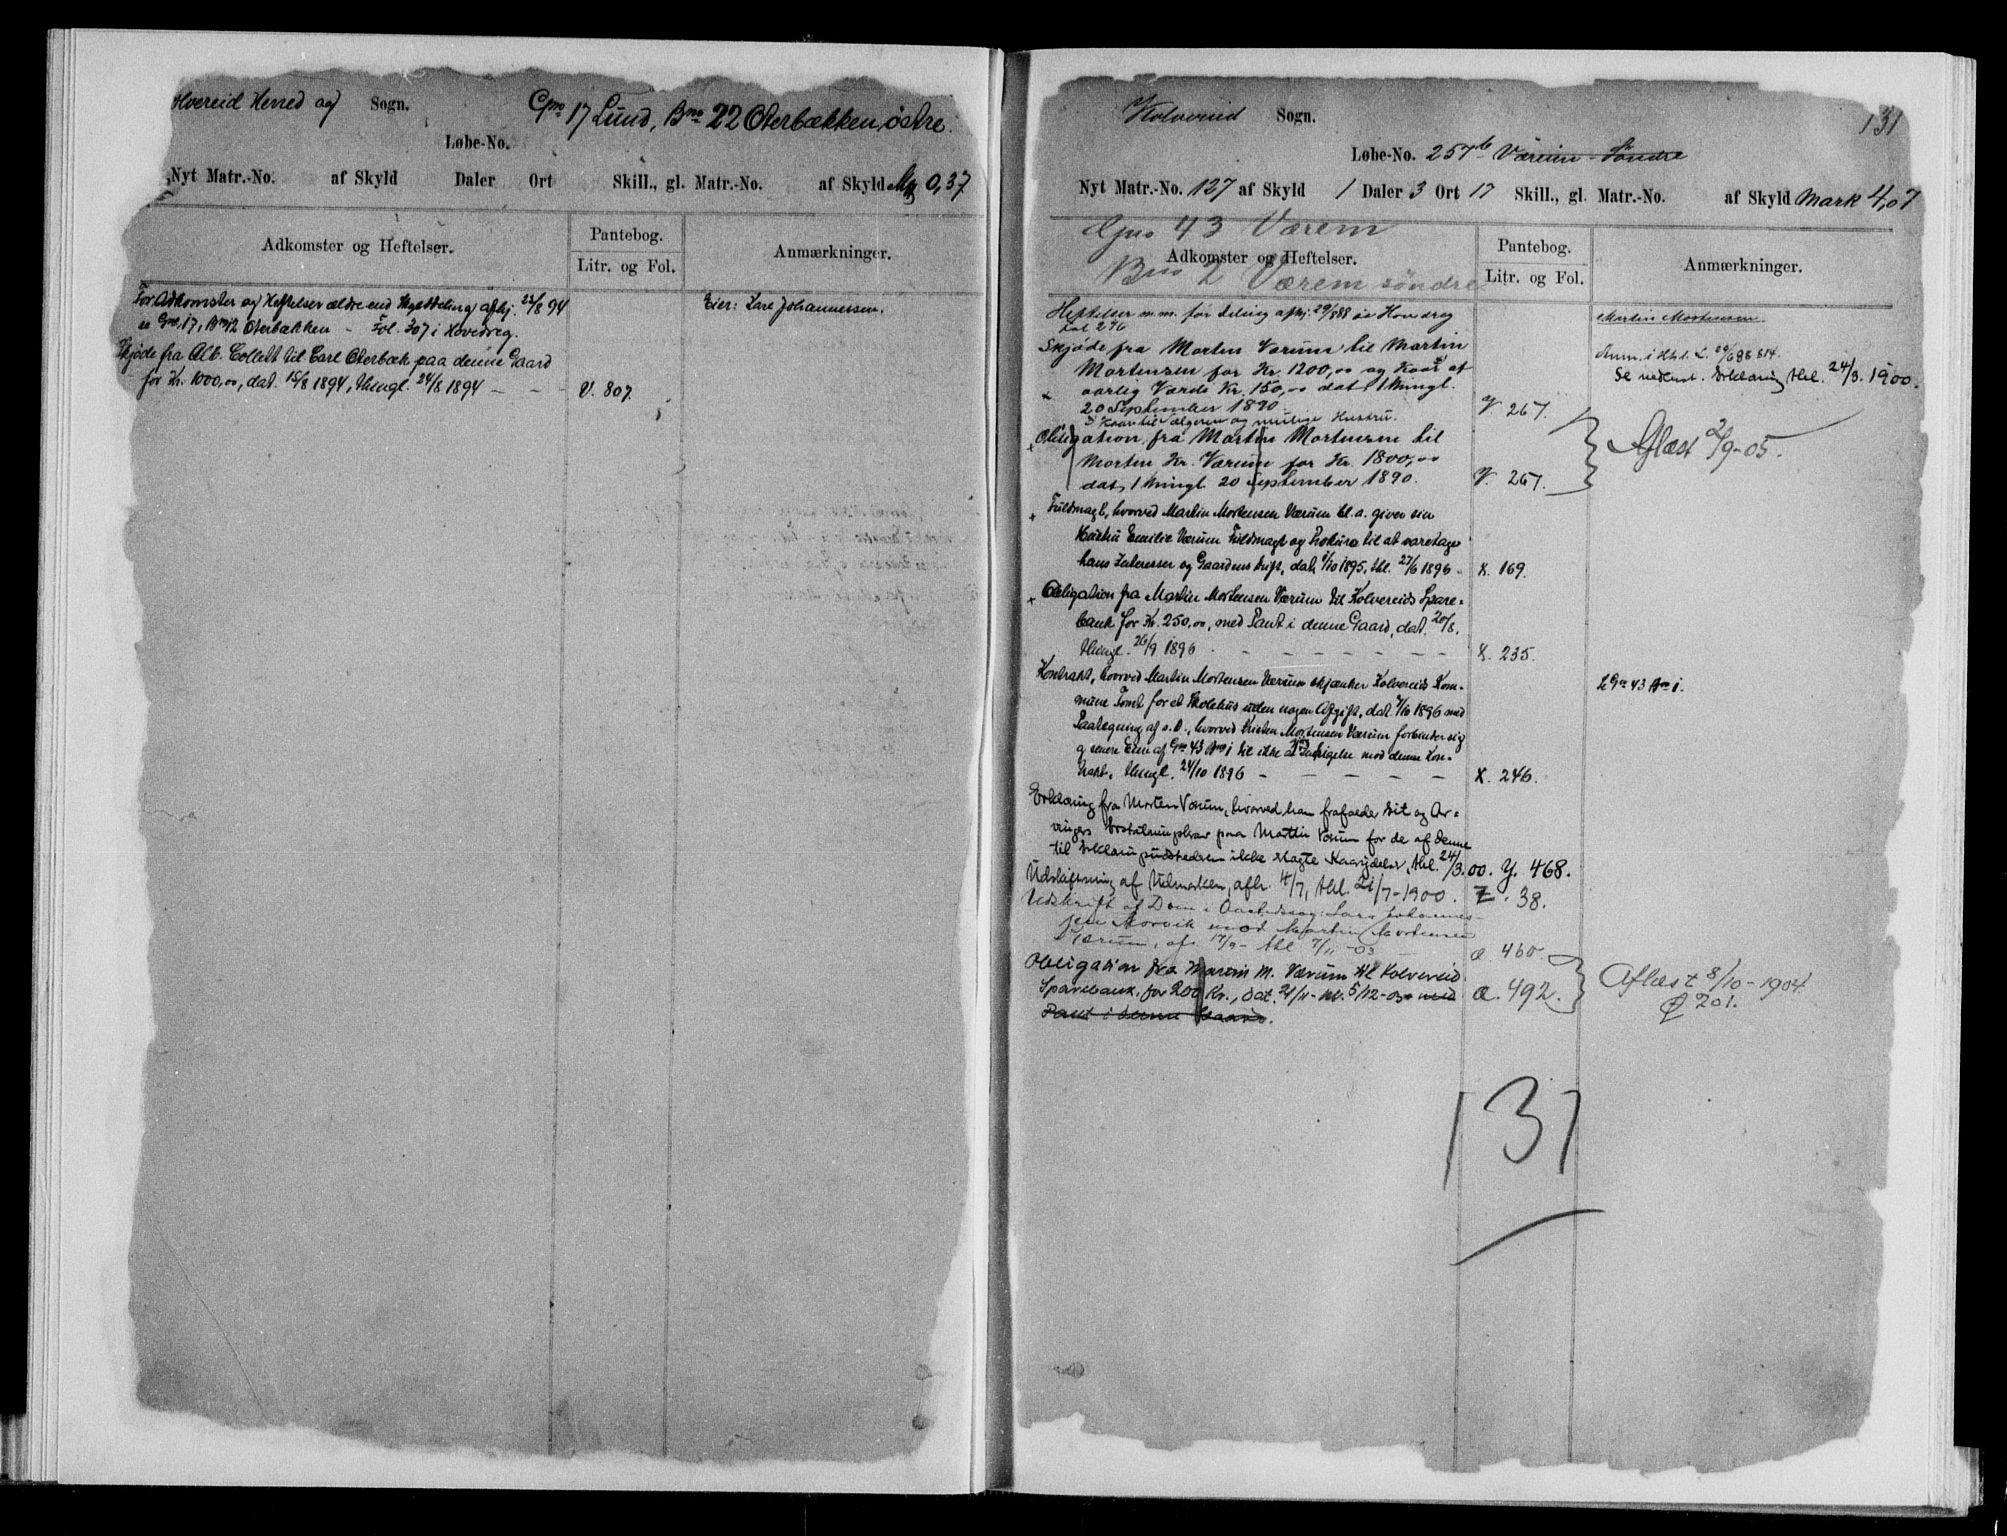 olvereid Herred og Sogn. Gno 17 Lund, Bno 22 Oterbækken, østre.
Løbe-No.
Nyt Matr.-No. af Skyld Daler Ort Skill., gl. Matr.-No. af Skyld Mk 0,37
Adkomster og Heftelser.
Pantebog.
Litr. og Fol.
Anmærkninger.
For Adkomster og Heftelser ældre end Skylddeling afhj. 23/8 94
se Gno 17, Bno 12 Oterbækken – Fol. 307 i Hovedreg.
Skjøde fra Alb. Collett til Carl Oterbæk paa denne Gaard
for Kr. 1000,00, dat. 15/8 1894, thingl. 24/8 1894 – – – V. 807.
Eier: Lare Johannessen.
Kolvereid Sogn. 131
Løbe-No. 257b Værum Søndre
Nyt Matr.-No. 127 af Skyld 1 Daler 3 Ort 17 Skill., gl. Matr.-No. af Skyld Mark 4,07
Gno 43 Værem
Adkomster og Heftelser.
Bno 2 Værem søndre
Pantebog.
Litr. og Fol.
Anmærkninger.
Heftelser m.m. før deling afhj. 29/888 se Hovdreg
Fol 276
Skjøde fra Morten Værum til Martin
Mortensen for Kr. 1200,00 og Kaar af
aarlig Værdi Kr. 150,00 dat. & thingl.
20 September 1890 V 267.
Kaar til Sælgeren og Hustru.
Obligation fra Martin Mortensen til
Morten Kr. Værum for Kr. 1800,00
dat. & thingl. 20 September 1890. V. 267.
Fuldmagt, hvorved Martin Mortensen Værum bl. a. giver sin
Hustru Emilie Værum Fuldmagt og Prokura til at varetage
hans Interesser og Gaardens Drift, dat. 1/10 1895, thl. 27/6 1896 – X. 169.
Obligation fra Martin Mortensen Værum til Kolvereids Spare-
bank for Kr. 250,00, med Pant i denne Gaard, dat. 20/8,
thingl. 26/9 1896 – – – – – – X. 235.
Kontrakt, hvorved Martin Mortensen Værum skjænker Kolvereids Kom-
mune Tomt for et Skolehus uden nogen Afgift, dat. 7/10 1896 med
Paategning af s. D., hvorved Kristen Mortensen Værum forbinder sig
og senere Eiere af Gno 43 Bno 1 til ikke at gjøre Indsigelse mod denne Kon-
trakt, thingl. 24/10 1896 – – – – – X. 246.
Erklæring fra Morten Værum, hvorved han frafalder sit og Ar-
vingers paa Martin Værum for de af denne
til ikke Kaarydelser, thl. 24/3.00. Y. 468.
Udskiftning af Udmarken, afh. 4/7, thl. 21/7-1900. Z. 38.
Udskrift af Dom i Aastedssag: Lars Johannes-
sen Aorvik mod Martin Mortensen
Værum, af. 17/9- thl 7/11-03 Æ 460.
Obligation fra Martin M. Værum til Kolvereid
Sparebank, for 200 Kr., dat. 21/11- thl. 5/12-03 med Æ. 492.
Pant i denne Gaard.
Martin Mortensen.
Anm. i Hhd. L. 29/6 88 814.
Se nedenst. Erklæring thl. 24/3. 1900.
Aflæst 2/9-05.
L Gno 43 Bno 1.
Aflæst 8/10-1904.
Ø 201.
131